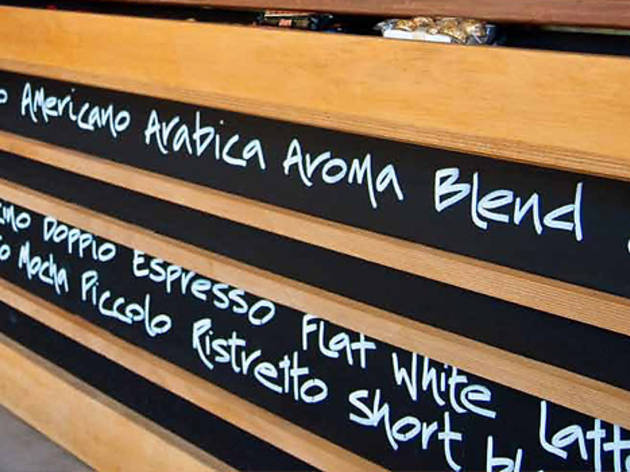 o Americano Arabica Aroma Blend
ino Doppio Espresso Flat White Latt
to Mocha Piccolo Ristretto Short bl